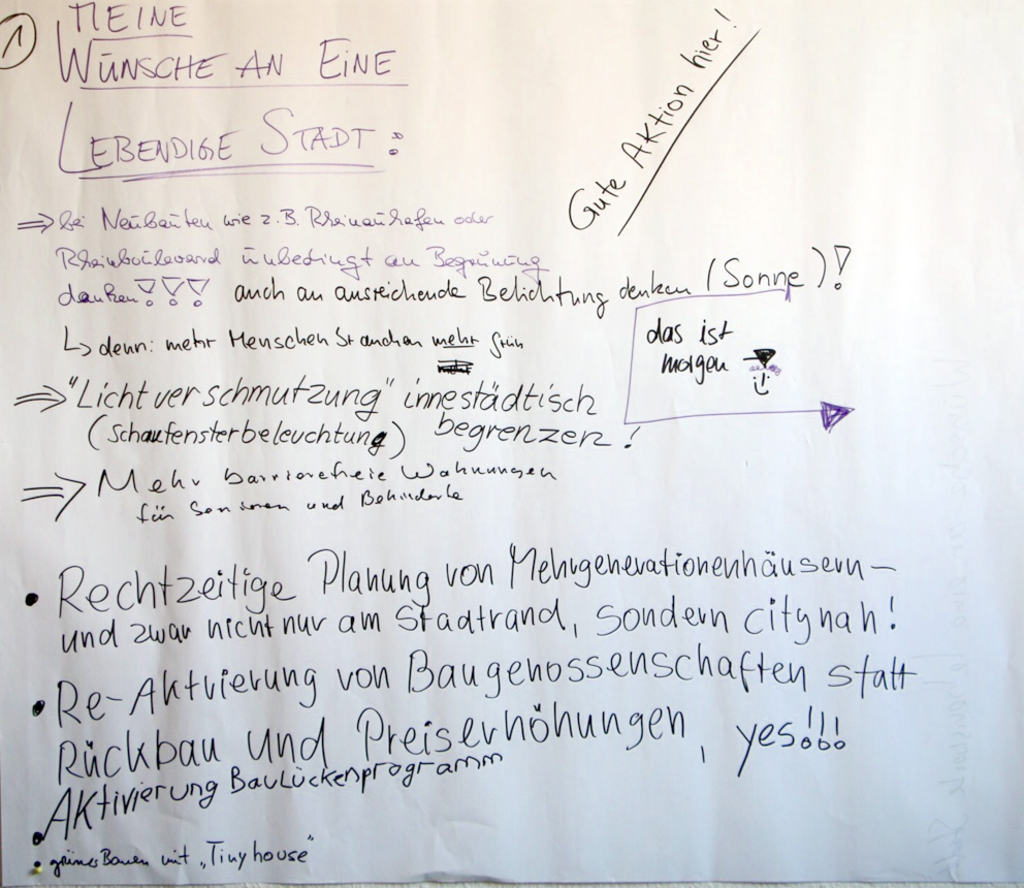 1
MEINE
WÜNSCHE AN EINE
LEBENDIGE STADT:
Gute Aktion hier!
⇒ bei Neubauten wie z.B. Rheinauhafen oder
Rheinboulevard unbedingt an Begrünung
denken!!! auch an ausreichende Belichtung denken (Sonne)!
↳ denn: mehr Menschen brauchen mehr grün
das ist
morgen
⇒ "Lichtverschmutzung" innestädtisch
(Schaufensterbeleuchtung) begrenzen!
⇒ Mehr barrierefreie Wohnungen
für Senioren und Behinderte
• Rechtzeitige Planung von Mehrgenerationenhäusern –
und zwar nicht nur am Stadtrand, sondern citynah!
• Re-Aktivierung von Baugenossenschaften statt
Rückbau und Preiserhöhungen, yes!!!
• Aktivierung Baulückenprogramm
• grünes Bauen mit „Tiny house"